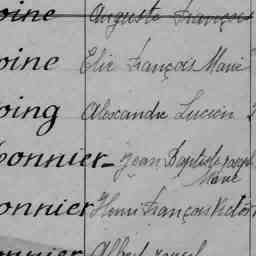 oine Auguste François
oine Elie François Marie
oing Alexandre Lucien
bonnier Jean Baptiste Joseph
Marie
onnier Henri François Victor
onnier Albert Joseph